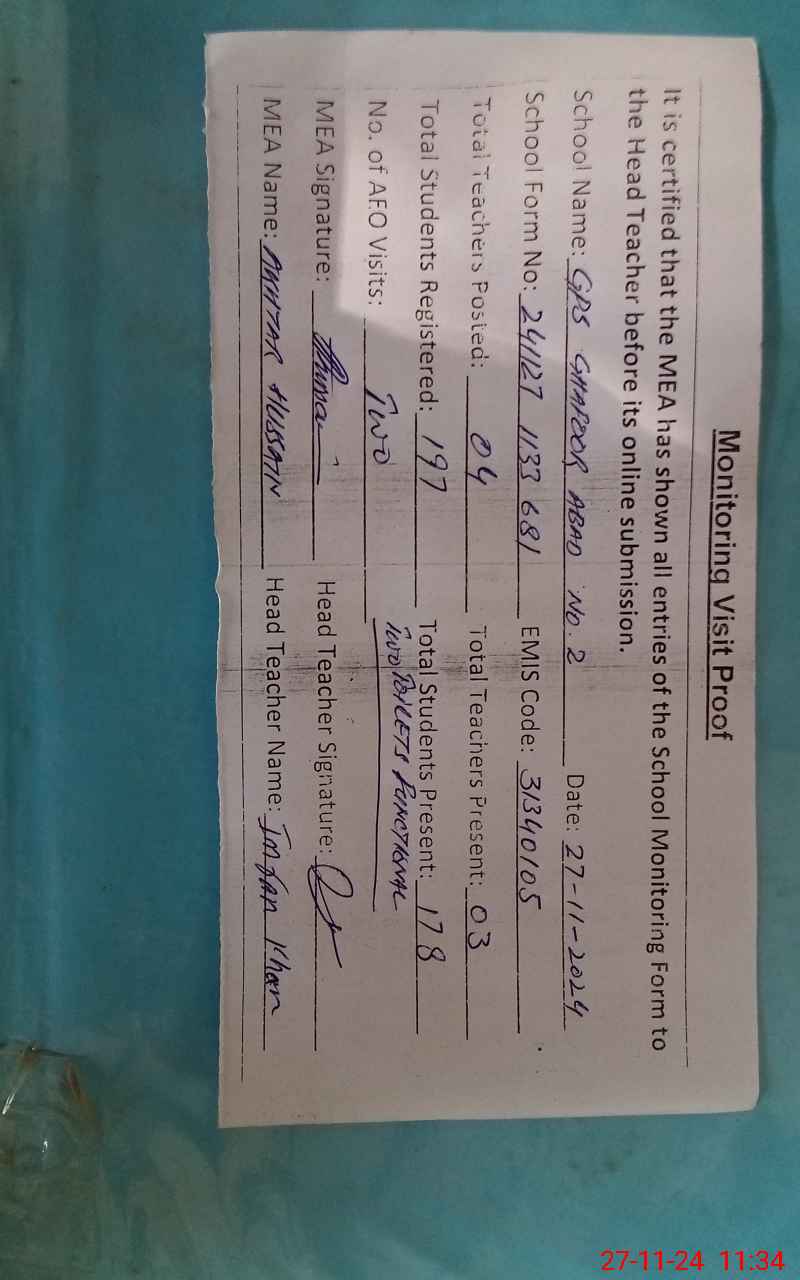 Monitoring Visit Proof
It is certified that the MEA has shown all entries of the School Monitoring Form to
the Head Teacher before its online submission.
School Name: GPS GHAFOOR ABAD No. 2 Date: 27-11-2024
School Form No: 241127 1133 681 EMIS Code: 31340105
Total Teachers Posted: 04 Total Teachers Present: 03
Total Students Registered: 197 Total Students Present: 178
No. of AEO Visits: Two Two TOILETS FUNCTIONAL
MEA Signature: Head Teacher Signature:
MEA Name: AKHTAR HUSSAIN Head Teacher Name: Imran Khan
27-11-24 11:34